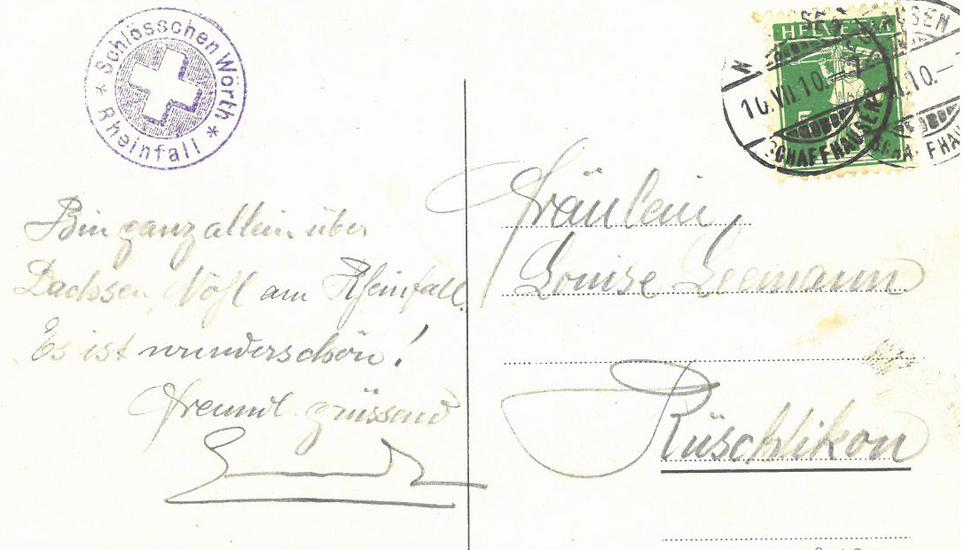 * Schlösschen Wörth *
Rheinfall
HELVETIA
5
10.VII.10.–7
SCHAFFHAUSEN
Bin ganz allein über
Dachsen, Nohl am Rheinfall.
Es ist wunderschön!
Freundl. grüssend
Fräulein
Louise Leemann
Rüschlikon